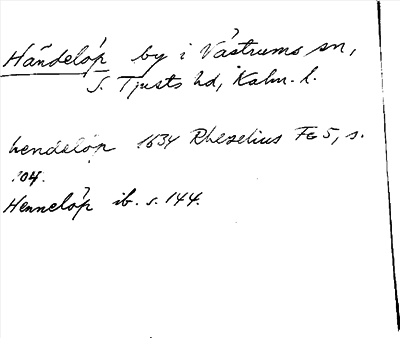 Händelöp by i Västrums sn,
S. Tjusts hd, Kalm. l.
hendelöp 1634 Rhezelius Fc 5, s.
104.
Hennelöp ib. s. 144.